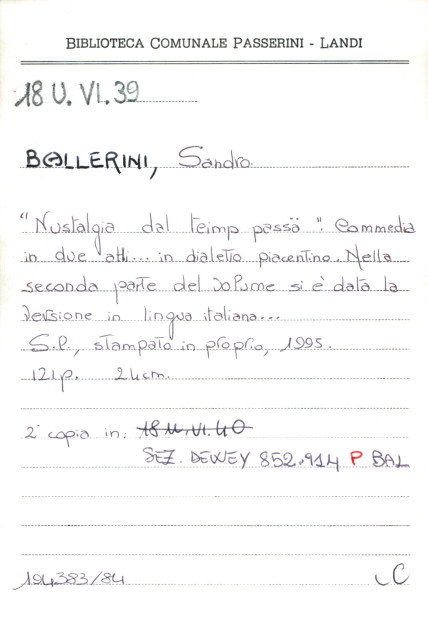 BIBLIOTECA COMUNALE PASSERINI - LANDI
18 U. VI. 39
BALLERINI, Sandro.
"Nustalgia dal teimp passä". Commedia
in due atti... in dialetto piacentino. Nella
seconda parte del volume si è data la
versione in lingua italiana...
S.l., stampato in proprio, 1995.
121p. 24cm.
2ª copia in: 18 U. VI. 40
SEZ. DEWEY 852.914 P BAL
194383/84
C